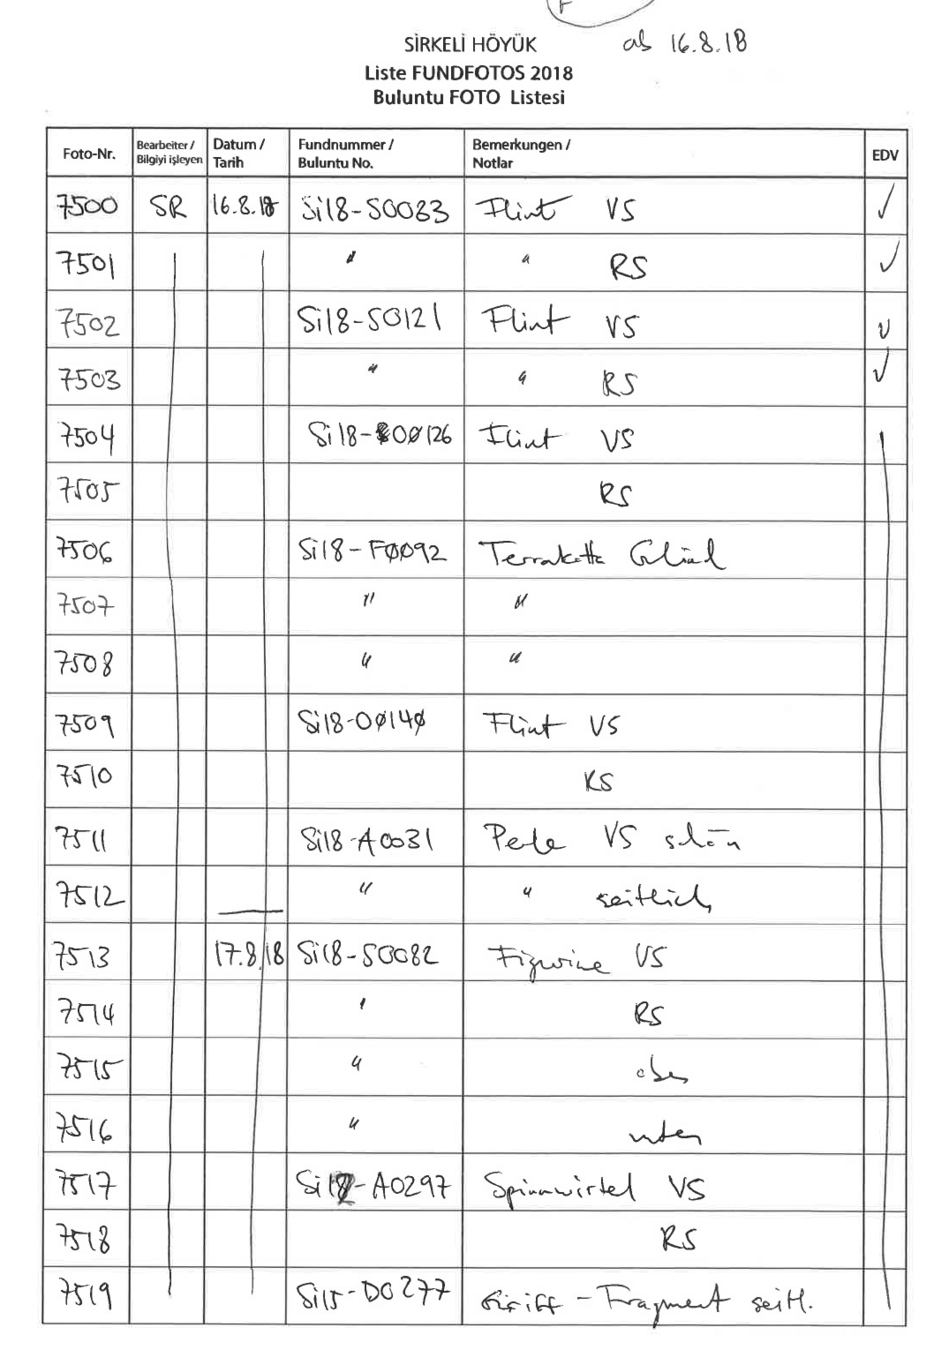 F
SİRKELİ HÖYÜK ab 16.8.18
Liste FUNDFOTOS 2018
Buluntu FOTO Listesi
Foto-Nr. Bearbeiter / Bilgiyi işleyen Datum / Tarih Fundnummer / Buluntu No. Bemerkungen / Notlar EDV
7500 SR 16.8.18 Si18-S0083 Flint VS ✓
7501 " " RS ✓
7502 Si18-S0121 Flint VS ✓
7503 " " RS ✓
7504 Si18-00126 Flint VS
7505 RS
7506 Si18-F0092 Terrakotta Gließ
7507 " "
7508 " "
7509 Si18-O0140 Flint VS
7510 RS
7511 Si18-A0031 Perle VS schön
7512 " " seitlich
7513 17.8.18 Si18-S0082 Figurine VS
7514 " RS
7515 " oben
7516 " unten
7517 Si18-A0297 Spinnwirtel VS
7518 RS
7519 Si15-D0277 Griff-Fragment seitl.